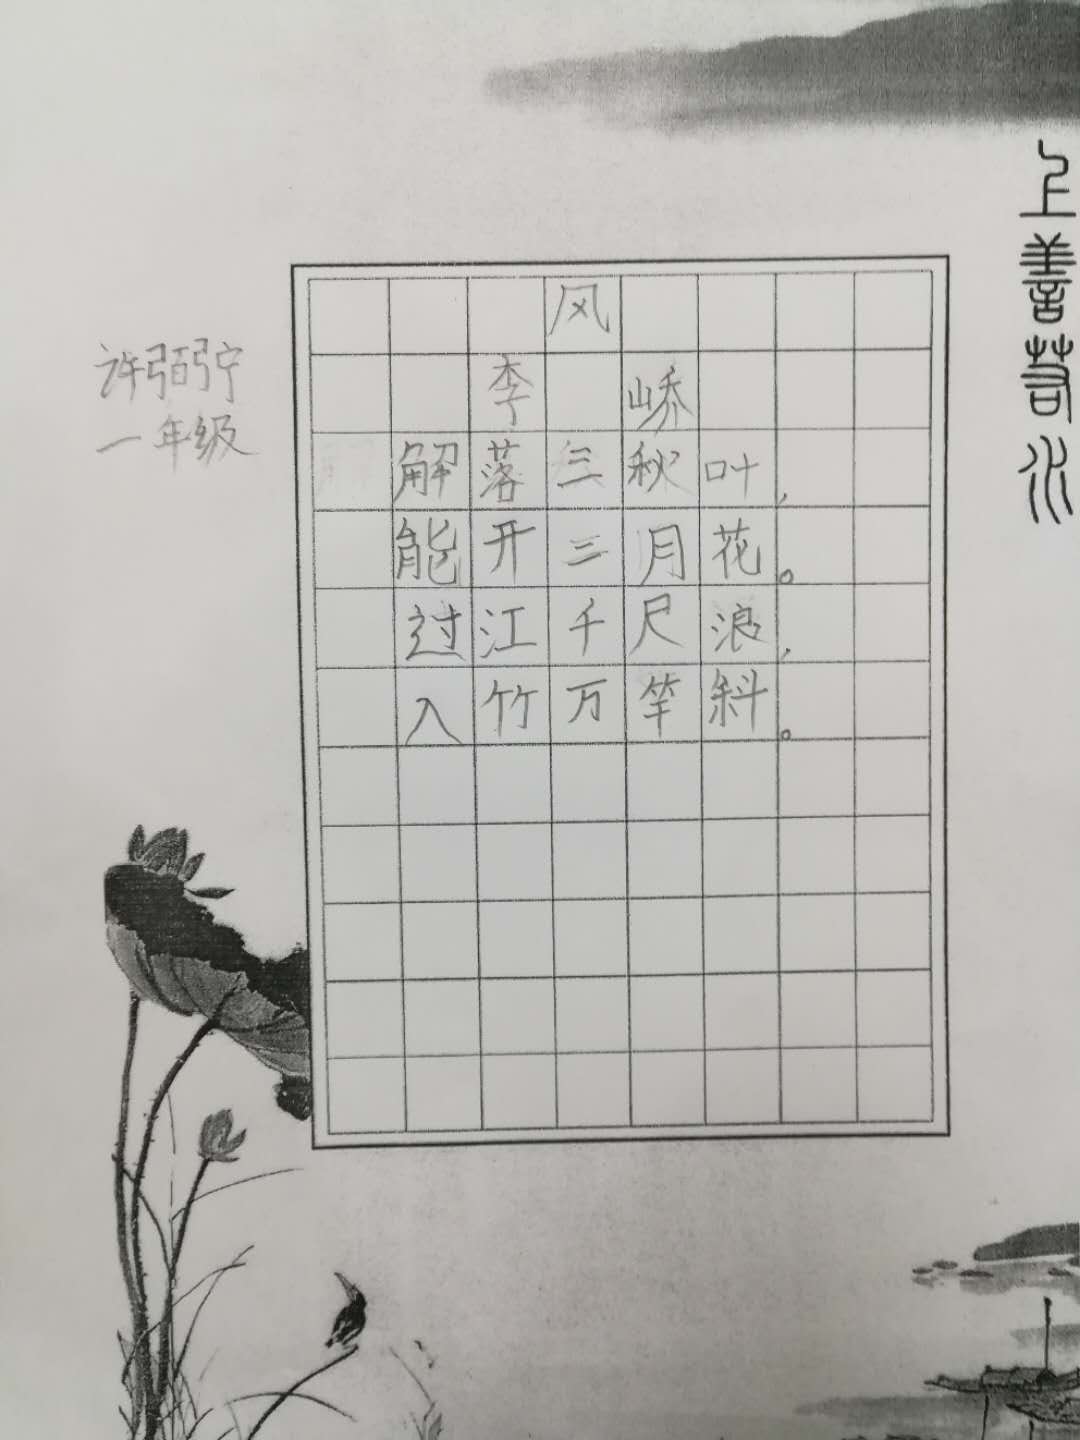 风
李峤
解落三秋叶,
能开三月花。
过江千尺浪,
入竹万竿斜。
许弼宁
一年级
上善若水